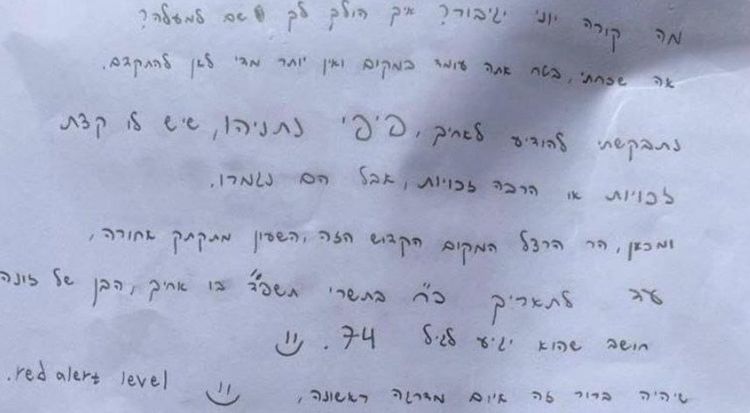 מה קורה יוני יגיבור? איך הולך לך שם למעלה?
אה שכחתי, בטח אתה עומד במקום ואין יותר מדי לאן להתקדם.
נתבקשתי להודיע לאחיך, פיפי נתניהו, שיש לו קצת
זכויות או הרבה זכויות, אבל הם נגמרו.
ומכאן, הר הרצל המקום הקדוש הזה, השעון מתקתק אחורה,
עד לתאריך כ"ח בתשרי תשפ"ד בו אחיך, הבן של זונה
חושב שהוא יגיע לגיל 74.
שיהיה ברור זה איום מדרגה ראשונה, red alert level.